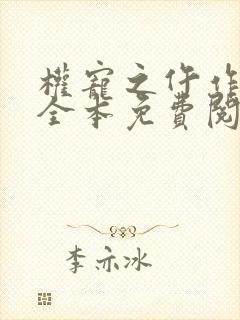 權寵之仵作
全本免費閱
李亦冰